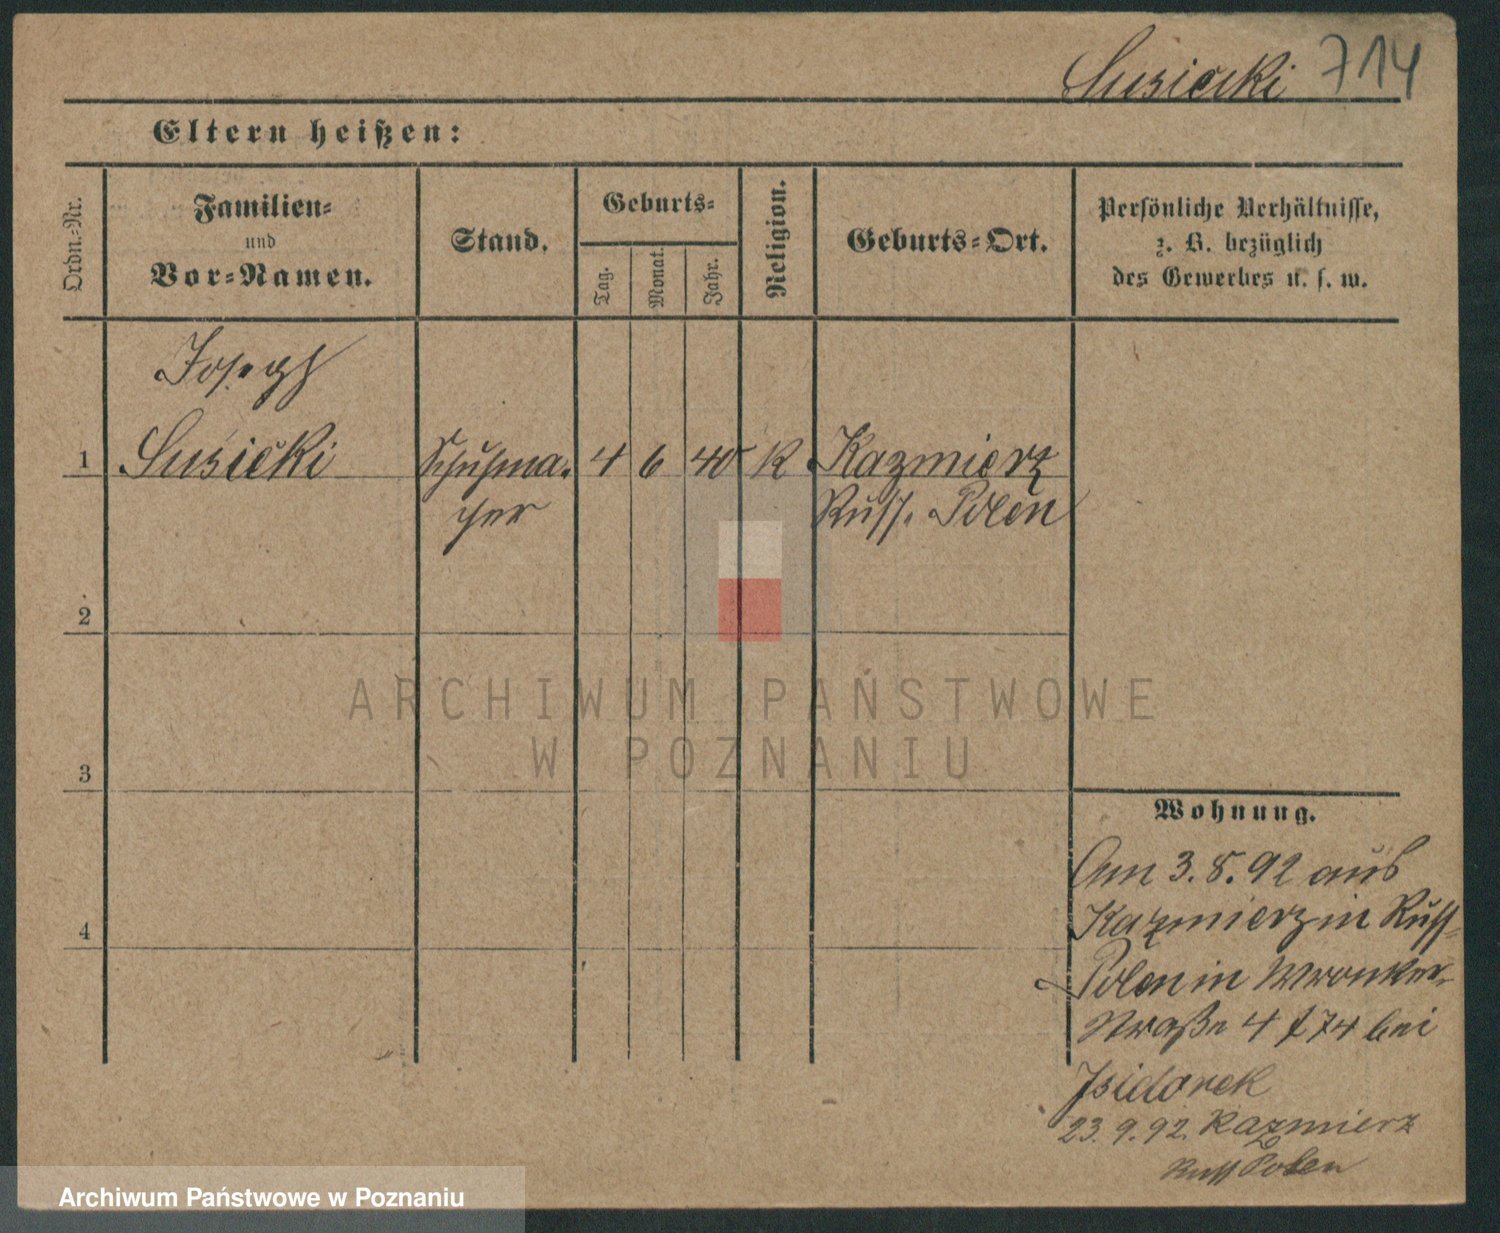 Susicki 714
Eltern heißen:
Ordn.-Nr.
Familien-
und
Vor-Namen.
Stand.
Geburts-
Tag.
Monat.
Jahr.
Religion.
Geburts-Ort.
Persönliche Verhältnisse,
z. B. bezüglich
des Gewerbes u. s. w.
Joseph
1 Susicki Schuhma- 4 6 40 K Kazmierz
cher Russ. Polen
2
ARCHIWUM PAŃSTWOWE
W POZNANIU
3
Wohnung.
Am 3.8.92 aus
Kazmierz in Russ-
4
Polen in Wronker-
Straße 4 f 74 bei
Isidorek
23.9.92. Kazmierz
Russ Polen
Archiwum Państwowe w Poznaniu